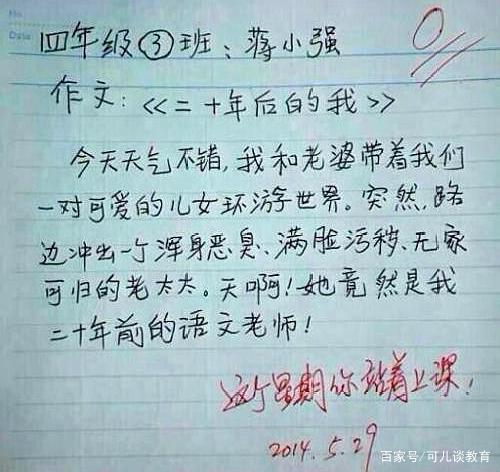 No
Date
四年级③班：蒋小强
0
作文：<<二十年后的我>>
今天天气不错，我和老婆带着我们
一对可爱的儿女环游世界。突然，路
边冲出一个浑身恶臭、满脸污秽、无家
可归的老太太。天啊！她竟然是我
二十年前的语文老师！
这个星期你站着上课！
2014.5.29
百家号/可儿谈教育